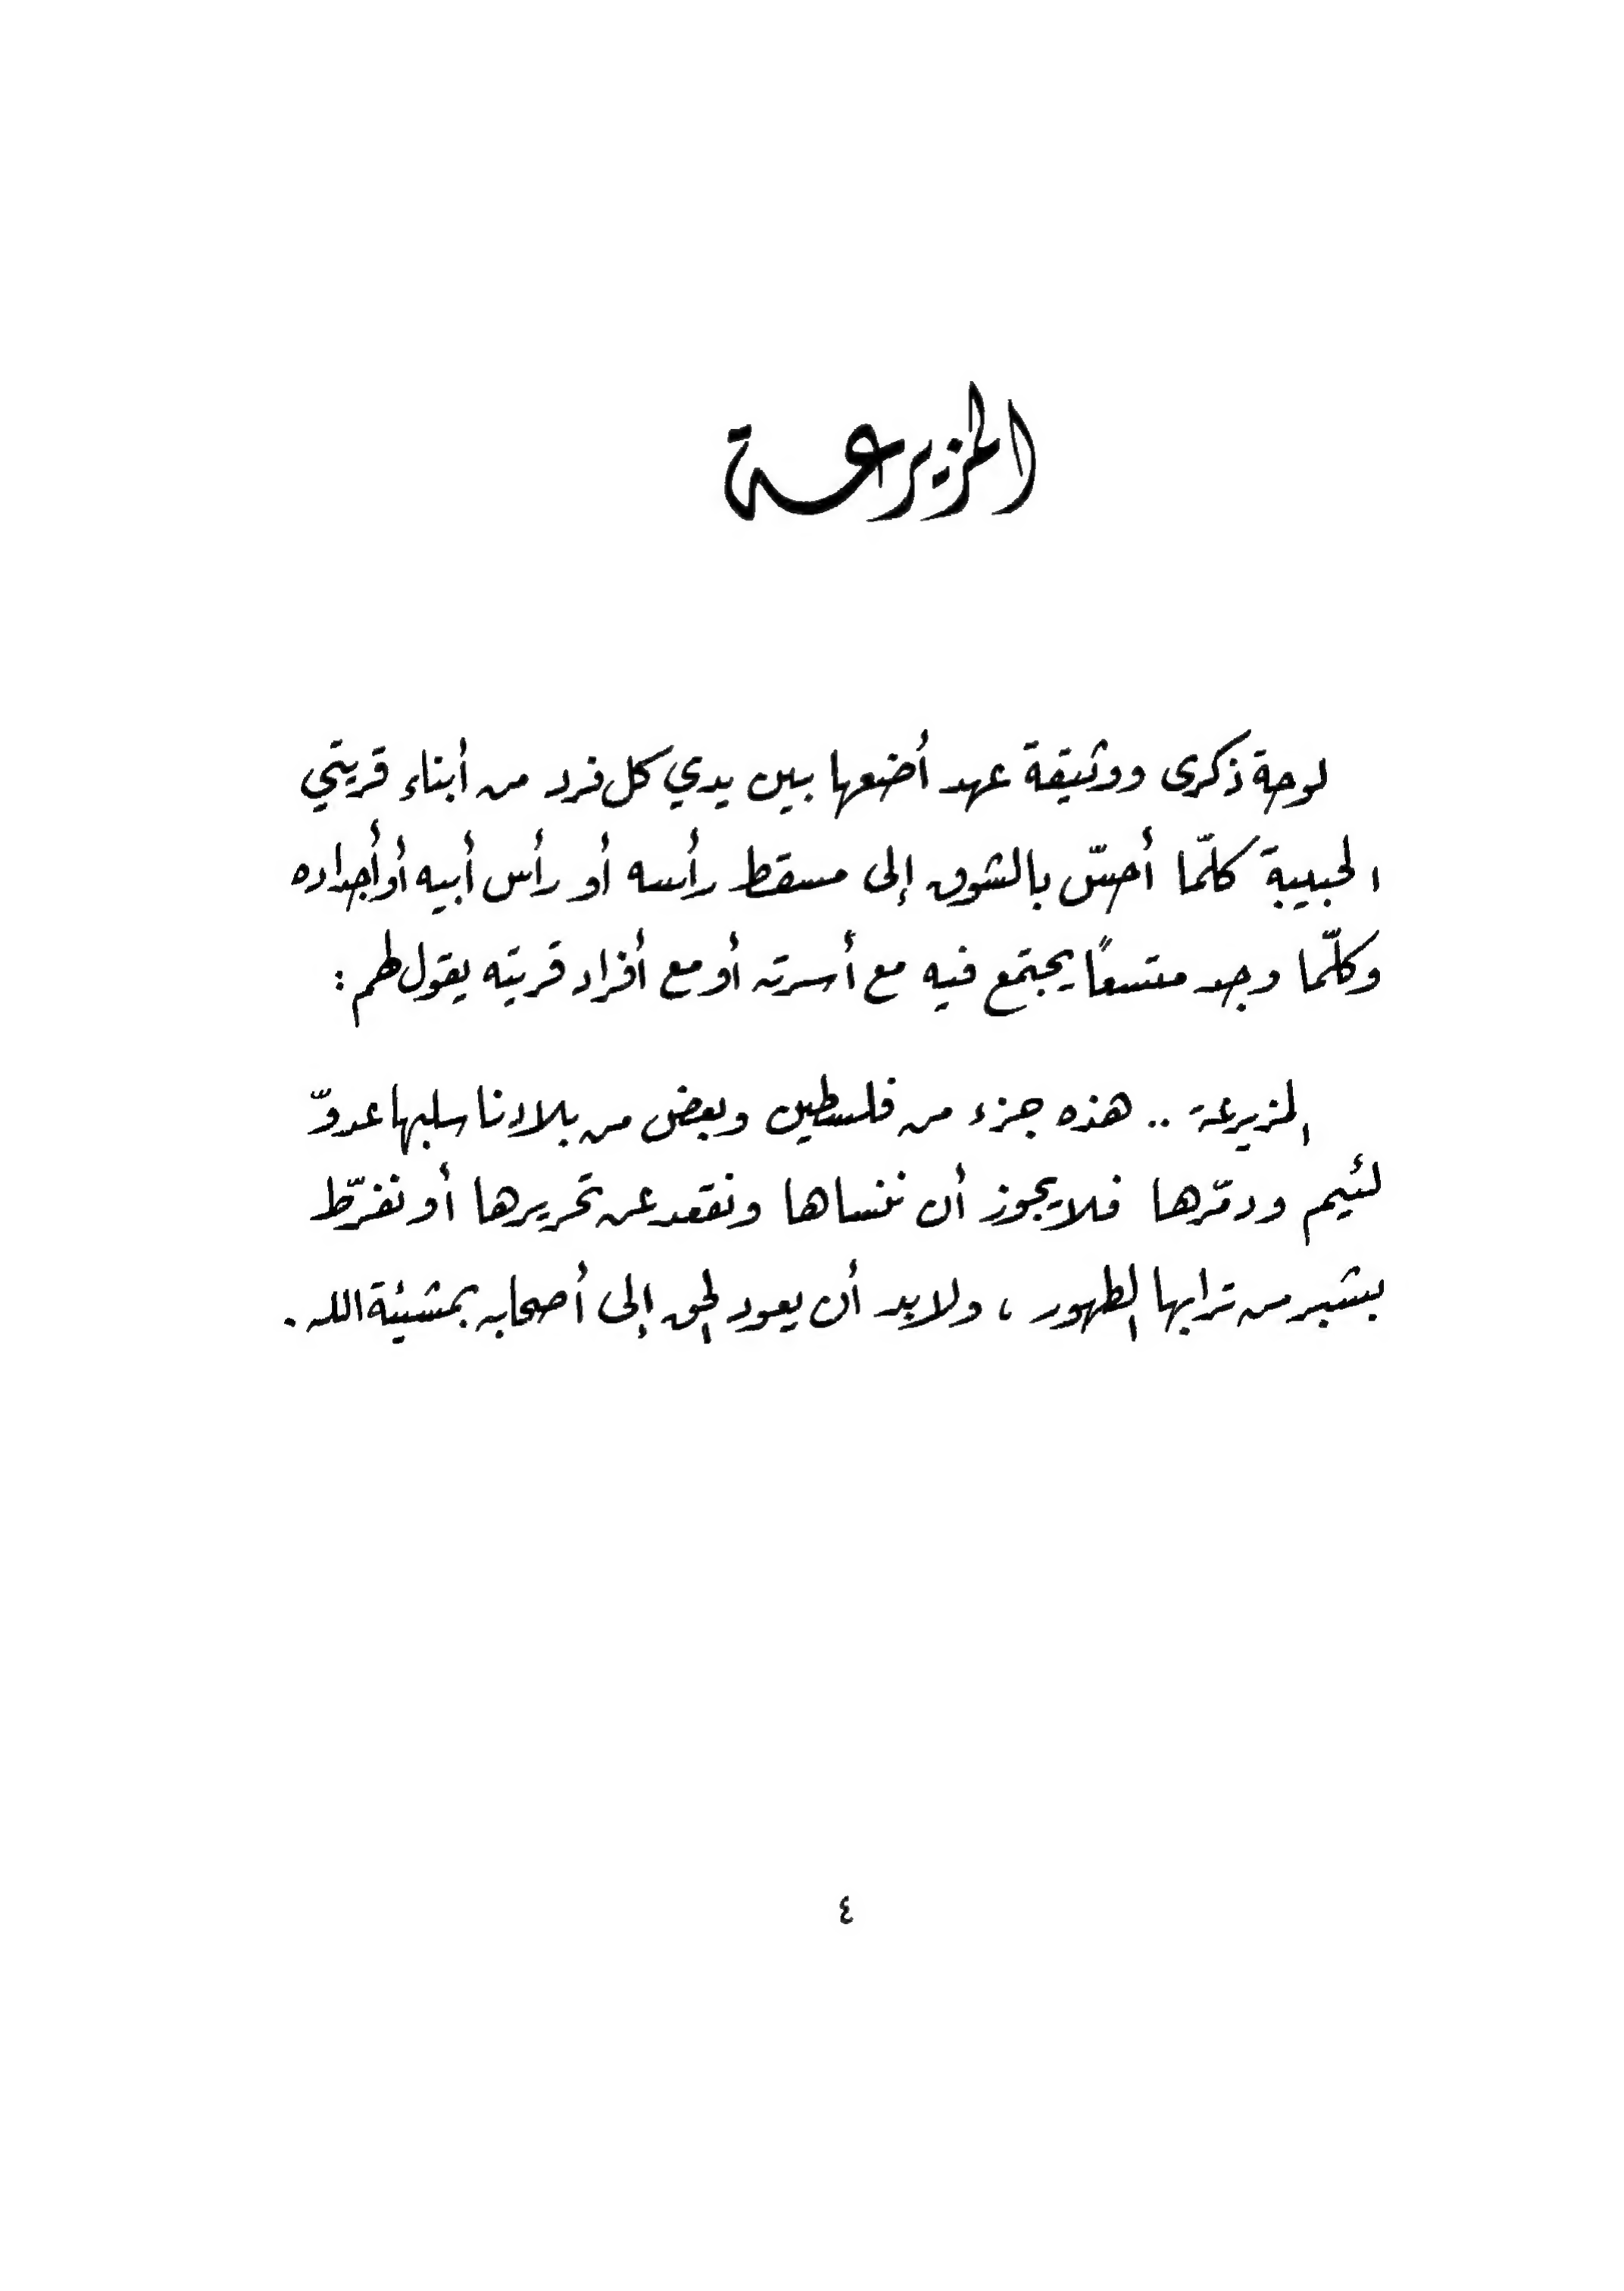 المزيرعة
لوحة ذكرى ووثيقة عهد أضعها بين يدي كل فرد من أبناء قريتي
الحبيبة كلّما أحسّ بالشوق إلى مسقط رأسه أو رأس أبيه أو أجداده
وكلّما وجد متسعاً يجتمع فيه مع أسرته أو مع أفراد قريته يقول لهم :
المزيرعة .. هذه جزء من فلسطين وبعض من بلادنا سلبها عدوّ
لئيم ودمّرها فلا يجوز أن ننساها ونقعد عن تحريرها أو نفرّط
بشبر من ترابها الطهور ، ولا بد أن يعود الحق إلى أصحابه بمشيئة الله .
٤